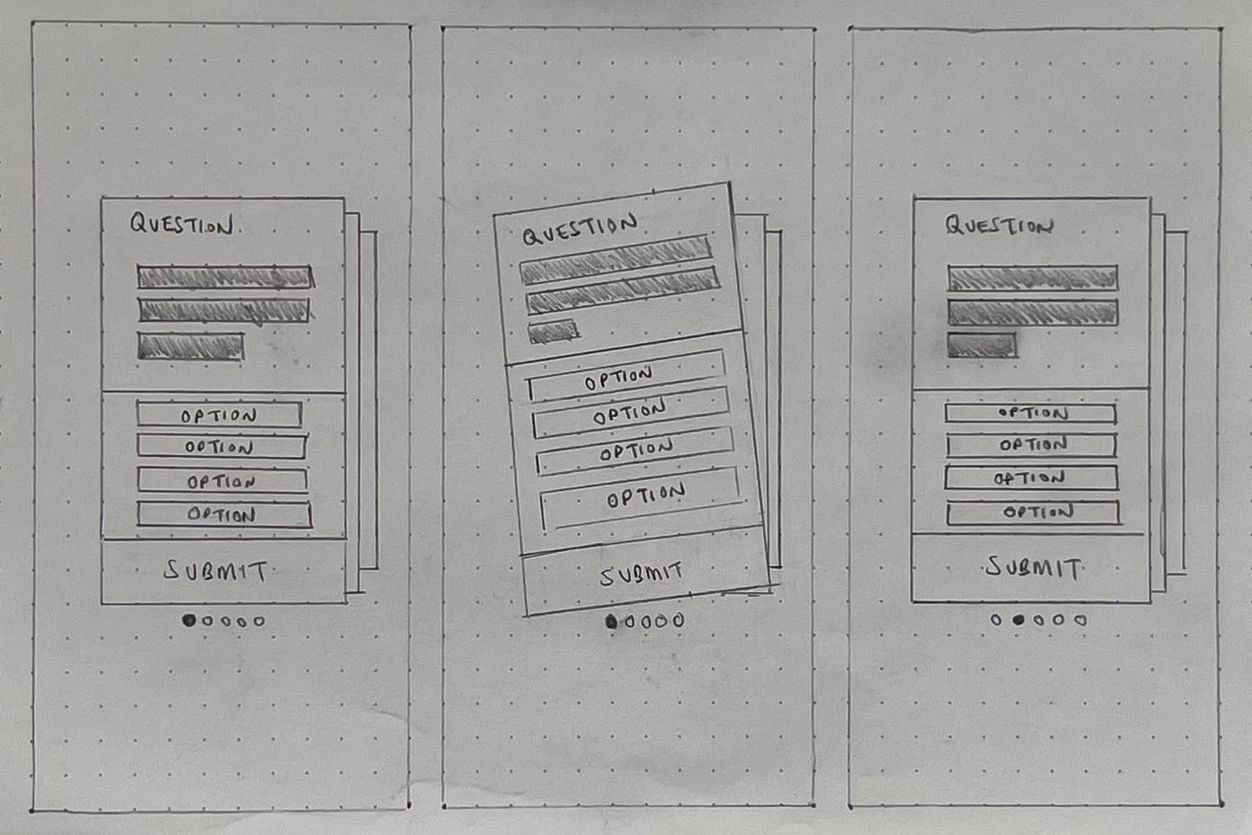 QUESTION.
OPTION
OPTION
OPTION
OPTION
SUBMIT
QUESTION
OPTION
OPTION
OPTION
OPTION
SUBMIT
QUESTION
OPTION
OPTION
OPTION
OPTION
SUBMIT